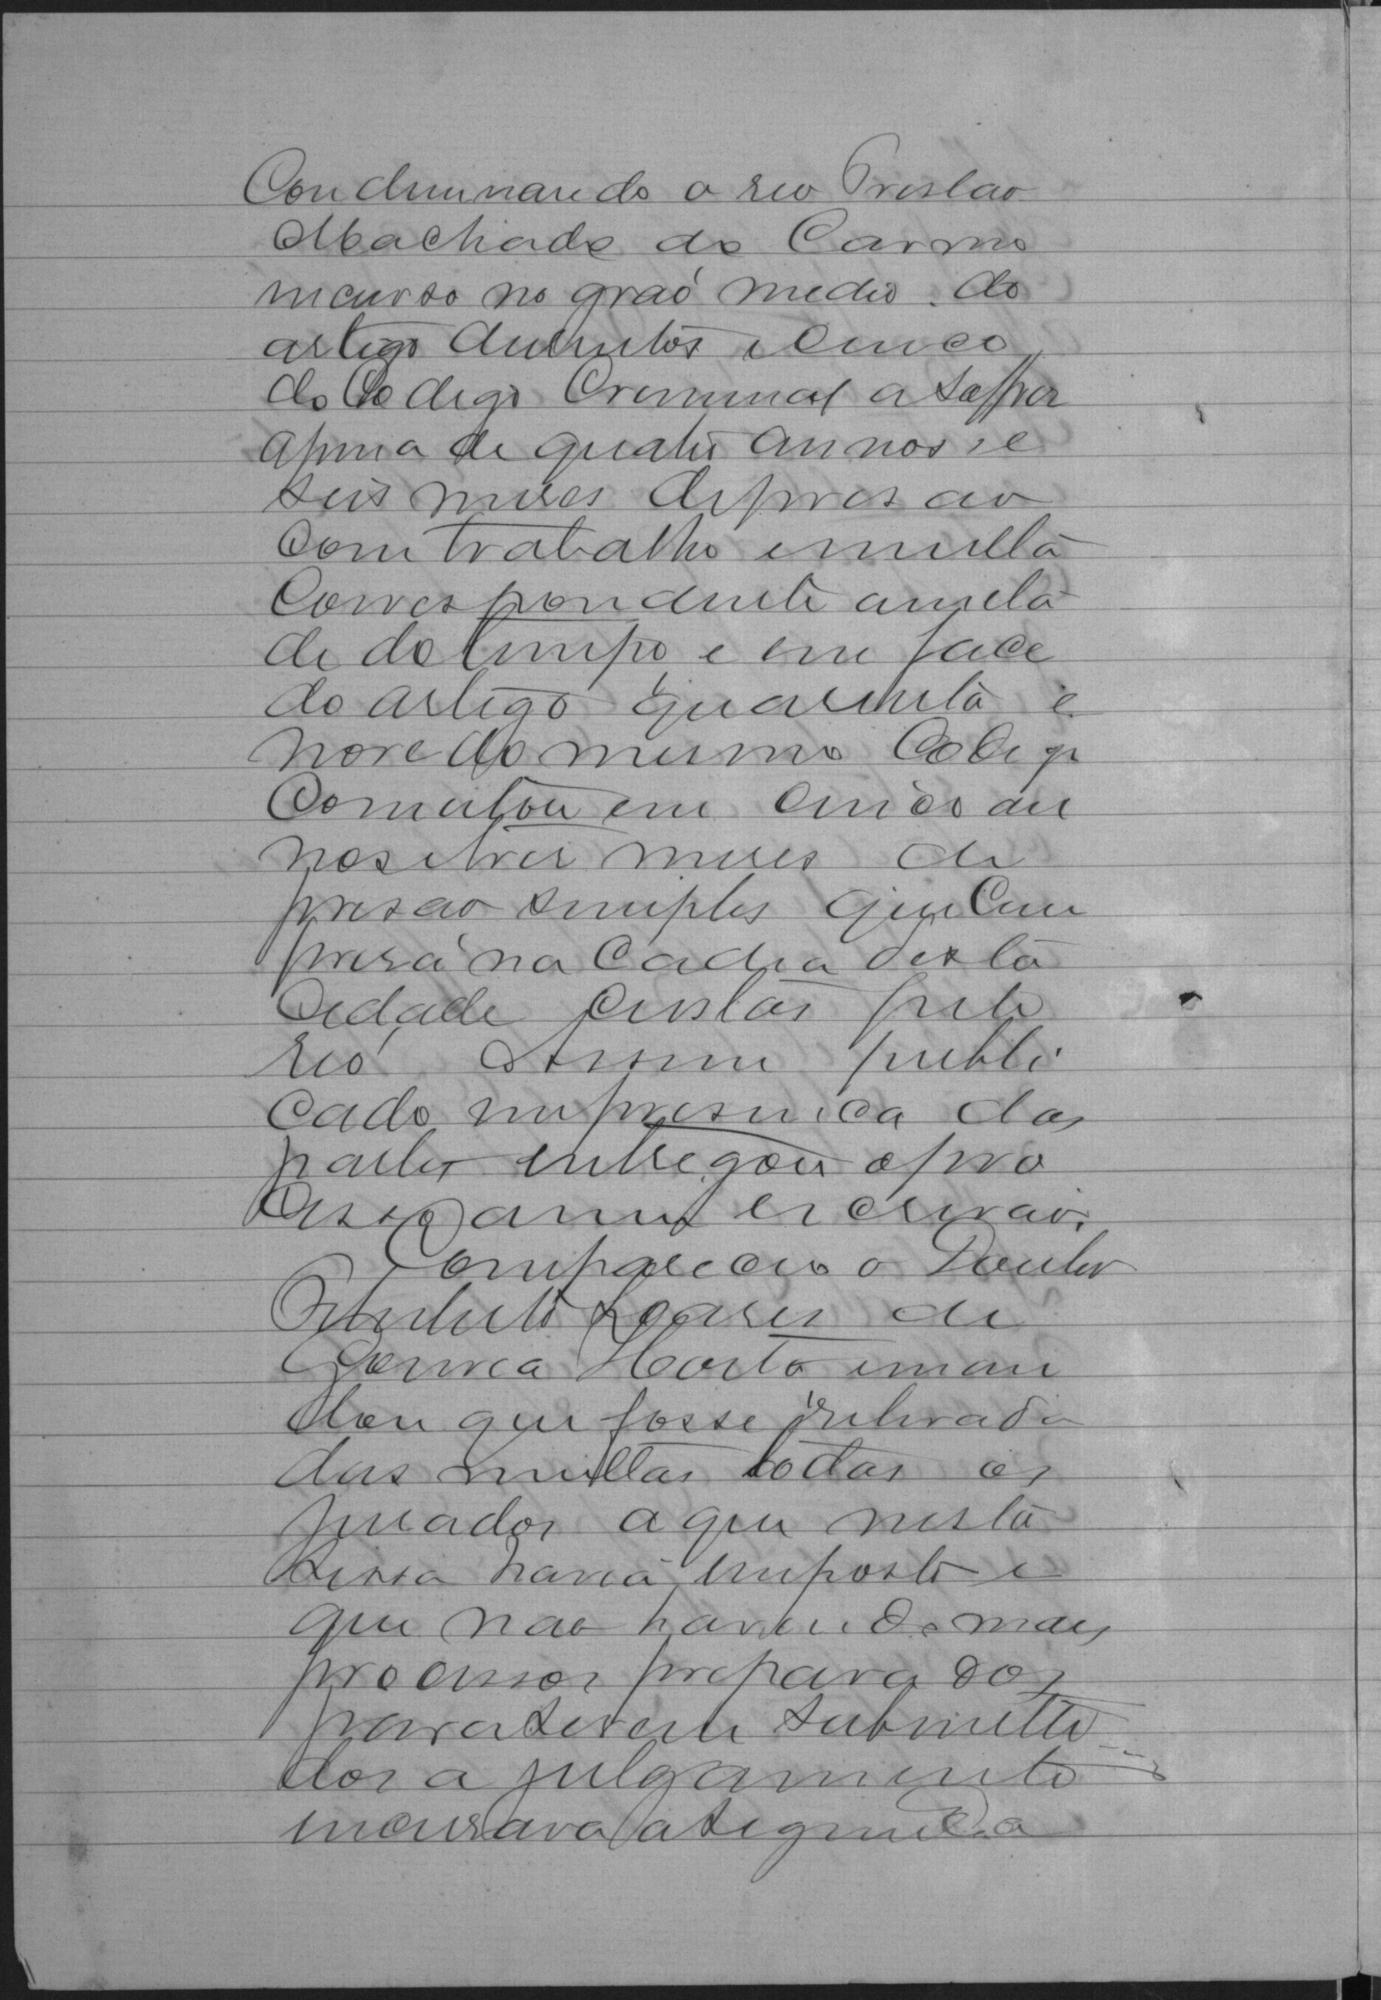 Condemnando o reo Tristão
Machado do Carmo
incurso no graó medio do
artigo dusentos e cinco
do Codigo Criminal a soffrer
apena de quatro annos e
seis meses de prisao
com trabalho e multa
correspondente ameta
de do tempo e em face
do artigo quarenta e
nove do mesmo Codigo
comutou em cinco an
nos e tres meses de
prisao simples que cum
prirá na cadea desta
cidade custas pelo
reó publi
cado na presença das
partes entregou o pro
cesso a mim escrivão.
Compareceu o Doutor
Soares de
Gouvea Horta e man
dou que fosse relevado
das multas todos os
jurados a que nesta
sessa havia imposto e
que nao havendo mais
processos preparados
para serem submetti
dos a julgamento
encerrava a segunda